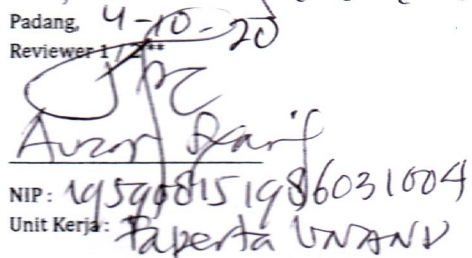 Padang, 4-10-20
Reviewer 1 / 2**
Auzar Syarif
NIP: 195908151986031004
Unit Kerja: Faperta UNAND